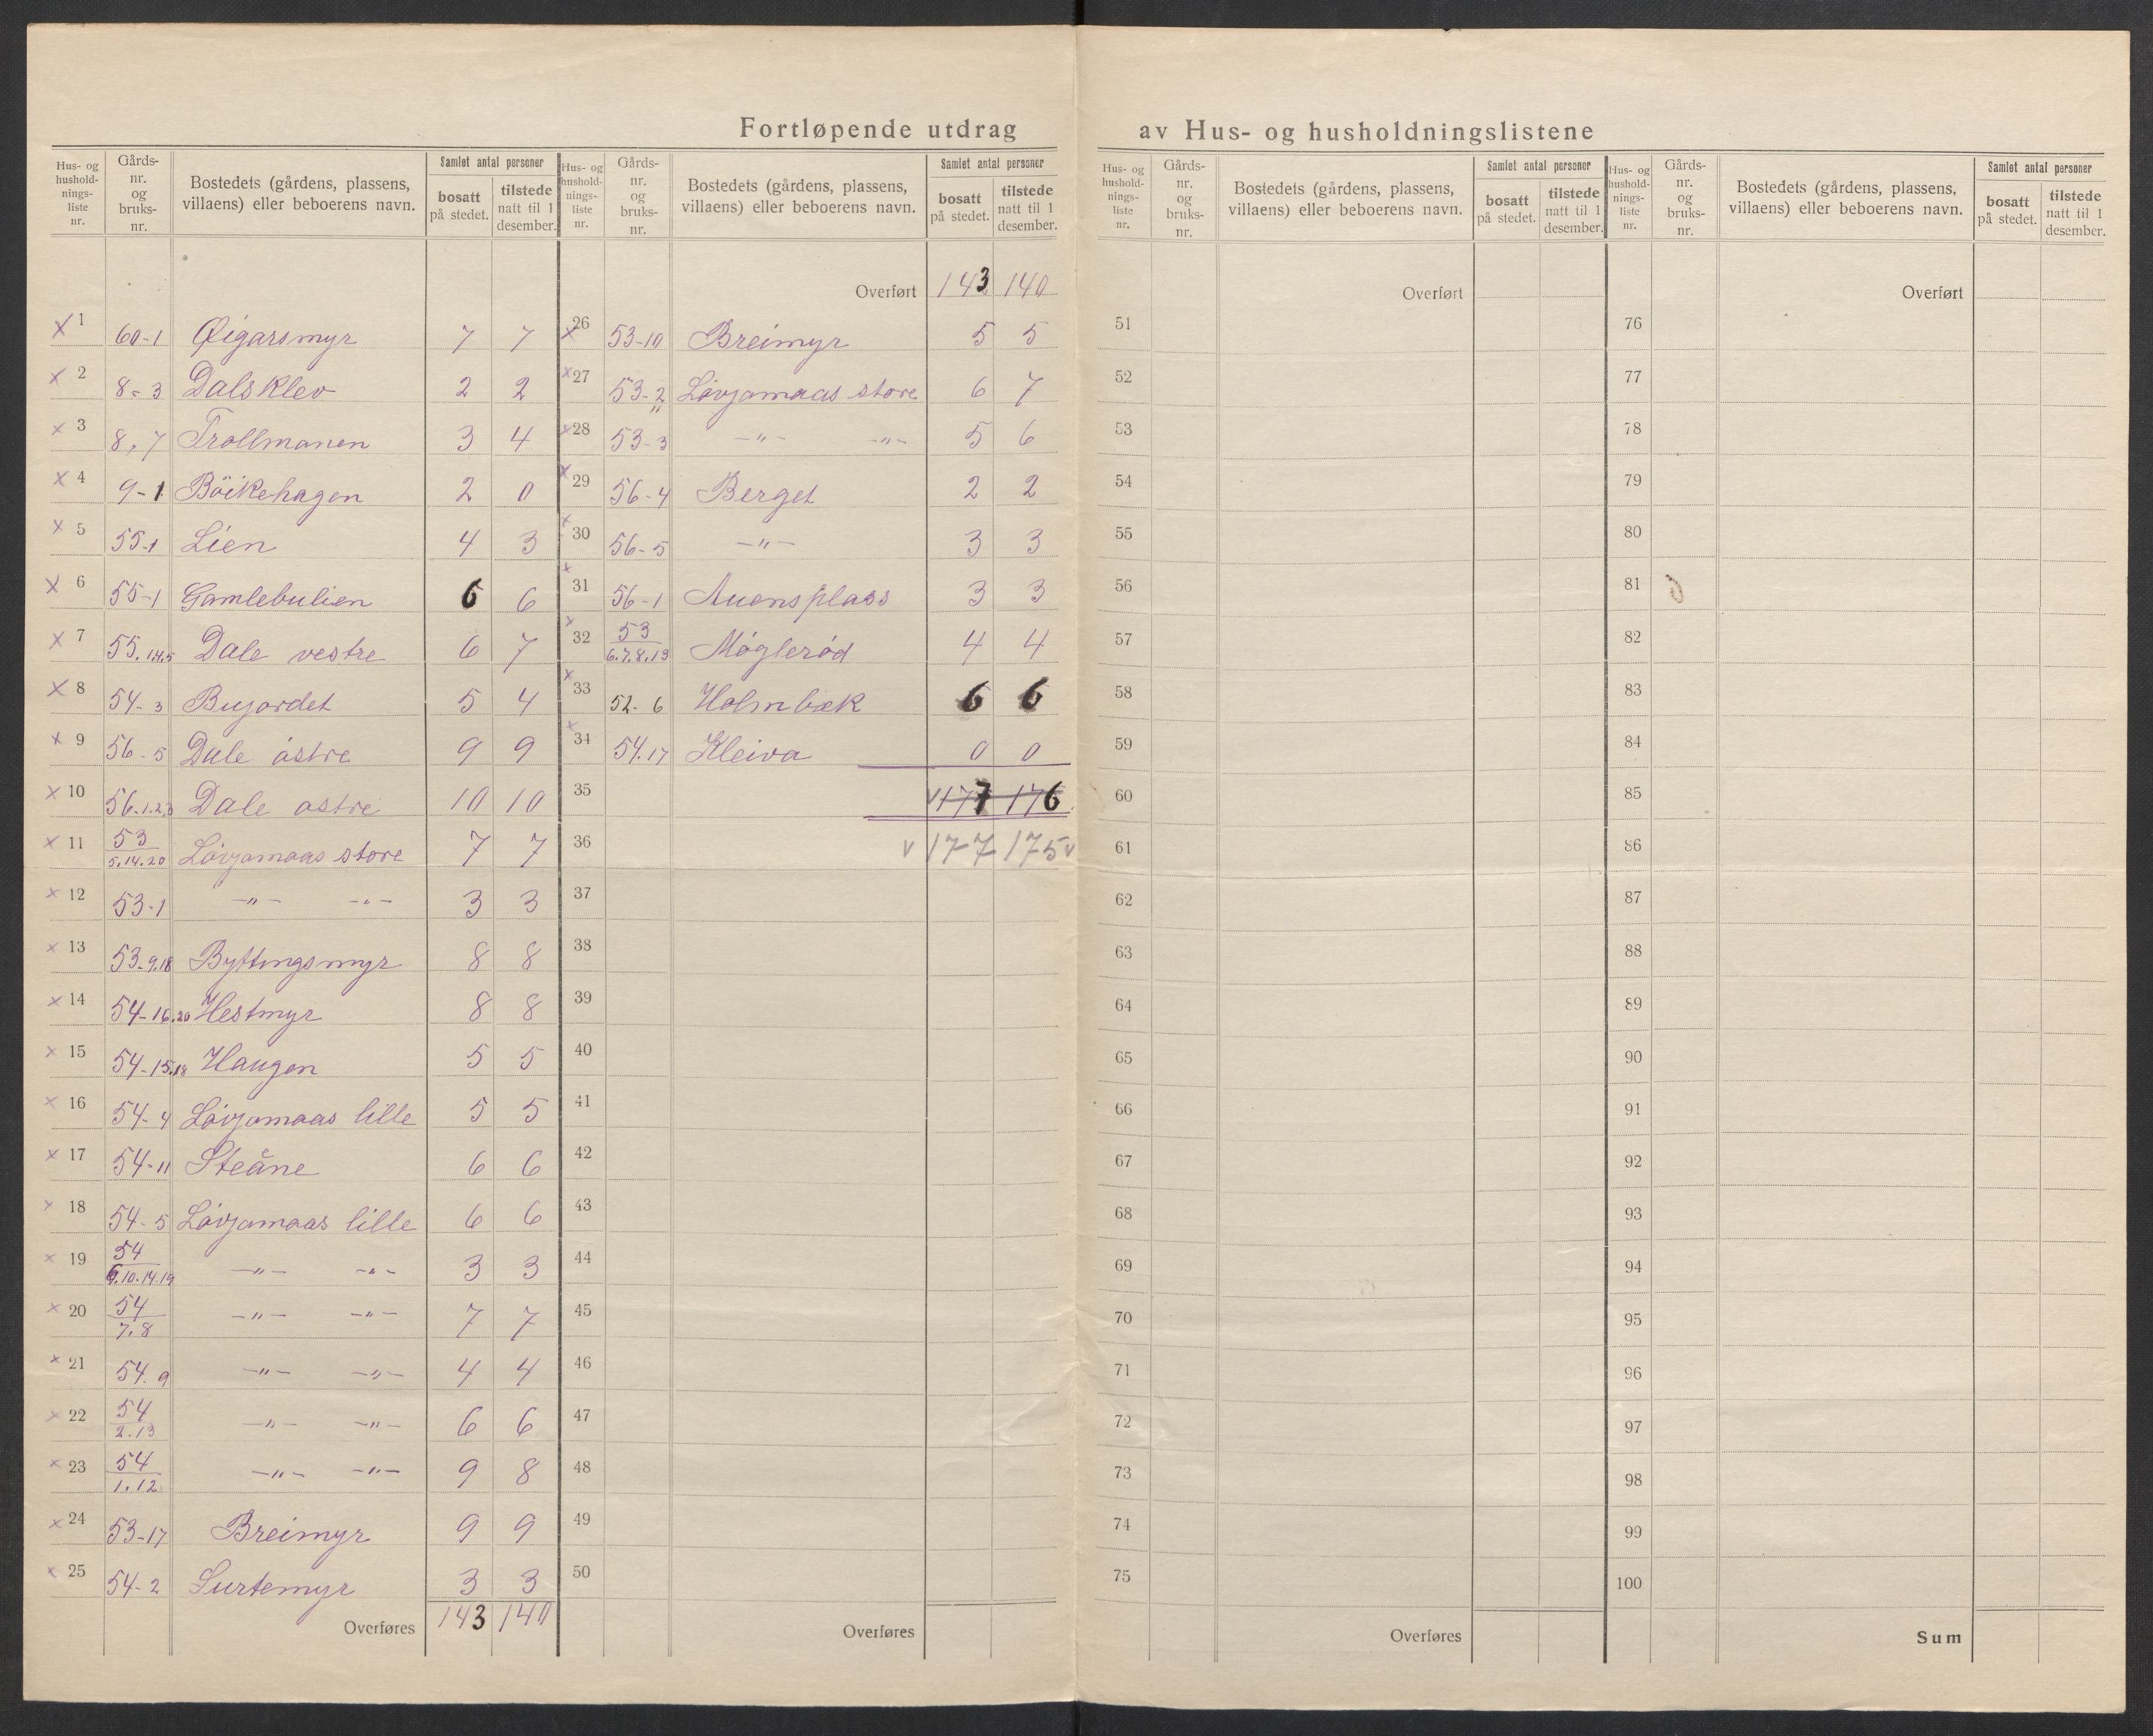 Fortløpende utdrag av Hus- og husholdningslistene
Hus- og hushold-nings-liste nr. | Gårds-nr. og bruks-nr. | Bostedets (gårdens, plassens, villaens) eller beboerens navn. | Samlet antal personer | bosatt på stedet. | tilstede natt til 1 desember.
1 60-1 Øigarsmyr 7 7
2 8-3 Dalsklev 2 2
3 8,7 Trollmanen 3 4
4 9-1 Böikehagen 2 0
5 55-1 Lien 4 3
6 55-1 Gamlebulien 6 6
7 55.1.4.5 Dale vestre 6 7
8 54-3 Bujordet 5 4
9 56-5 Dale östre 9 9
10 56.1.2.3 Dale östre 10 10
11 53/5.14.20 Lövjomaas store 7 7
12 53-1 -"- -"- 3 3
13 53-9.18 Byttingsmyr 8 8
14 54-16.20 Hestmyr 8 8
15 54-15.18 Haugen 5 5
16 54-4 Lövjomaas lille 5 5
17 54-11 Steåne 6 6
18 54-5 Lövjomaas lille 6 6
19 54/6.10.14.19 -"- -"- 3 3
20 54/7.8 -"- -"- 7 7
21 54.9 -"- -"- 4 4
22 54/2.13 -"- -"- 6 6
23 54/1.12 -"- -"- 9 8
24 53-17 Breimyr 9 9
25 54-2 Surtemyr 3 3
Overføres 143 140
Hus- og hushold-nings-liste nr. | Gårds-nr. og bruks-nr. | Bostedets (gårdens, plassens, villaens) eller beboerens navn. | Samlet antal personer | bosatt på stedet. | tilstede natt til 1 desember.
Overført 143 140
26 53-10 Breimyr 5 5
27 53-2 " Lövjomaas store 6 7
28 53-3 -"- -"- 5 6
29 56-4 Berget 2 2
30 56-5 -"- 3 3
31 56-1 Auensplass 3 3
32 53/6.7.8.13 Møglerød 4 4
33 52-6 Holmbæk 6 6
34 54.17 Kleiva 0 0
35 v 177 176
36 v 177 175 v
37
38
39
40
41
42
43
44
45
46
47
48
49
50
Overføres
Hus- og hushold-nings-liste nr. | Gårds-nr. og bruks-nr. | Bostedets (gårdens, plassens, villaens) eller beboerens navn. | Samlet antal personer | bosatt på stedet. | tilstede natt til 1 desember.
Overført
51
52
53
54
55
56
57
58
59
60
61
62
63
64
65
66
67
68
69
70
71
72
73
74
75
Overføres
Hus- og hushold-nings-liste nr. | Gårds-nr. og bruks-nr. | Bostedets (gårdens, plassens, villaens) eller beboerens navn. | Samlet antal personer | bosatt på stedet. | tilstede natt til 1 desember.
Overført
76
77
78
79
80
81
82
83
84
85
86
87
88
89
90
91
92
93
94
95
96
97
98
99
100
Sum